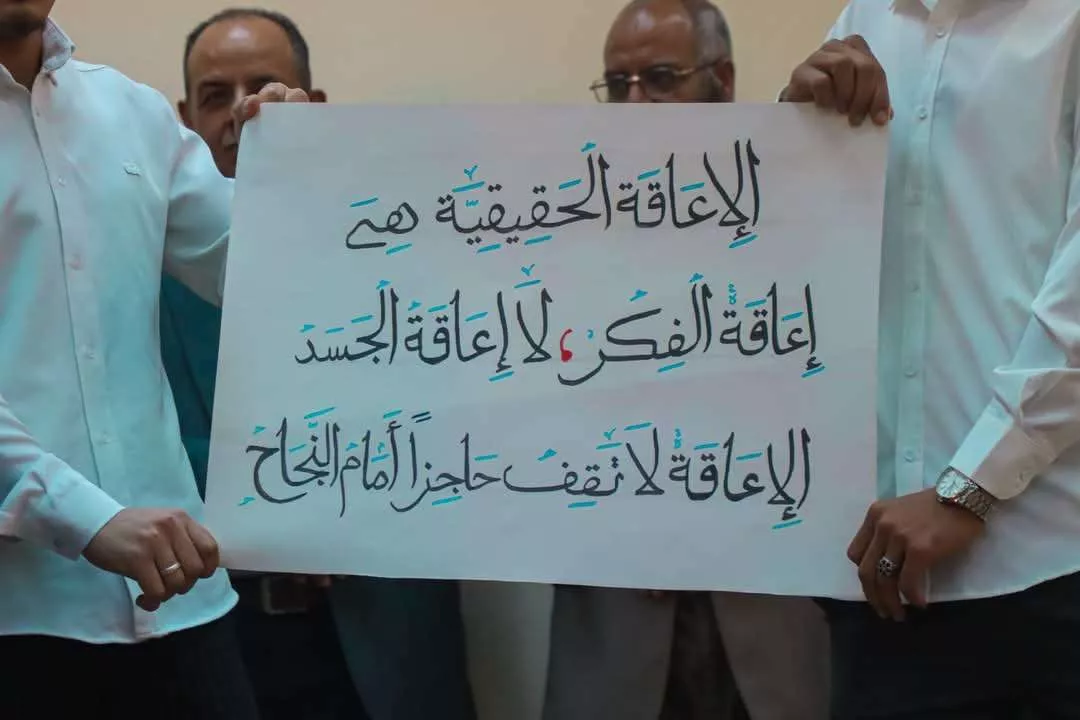 الإِعَاقَة الحَقِيقِيَّة هِيَ
إِعَاقَةُ الفِكرْ، لَا إِعَاقَةُ الجَسَدْ
الإِعَاقَةُ لَا تَقِفُ حَاجِزاً أَمَامَ النَّجَاحِ